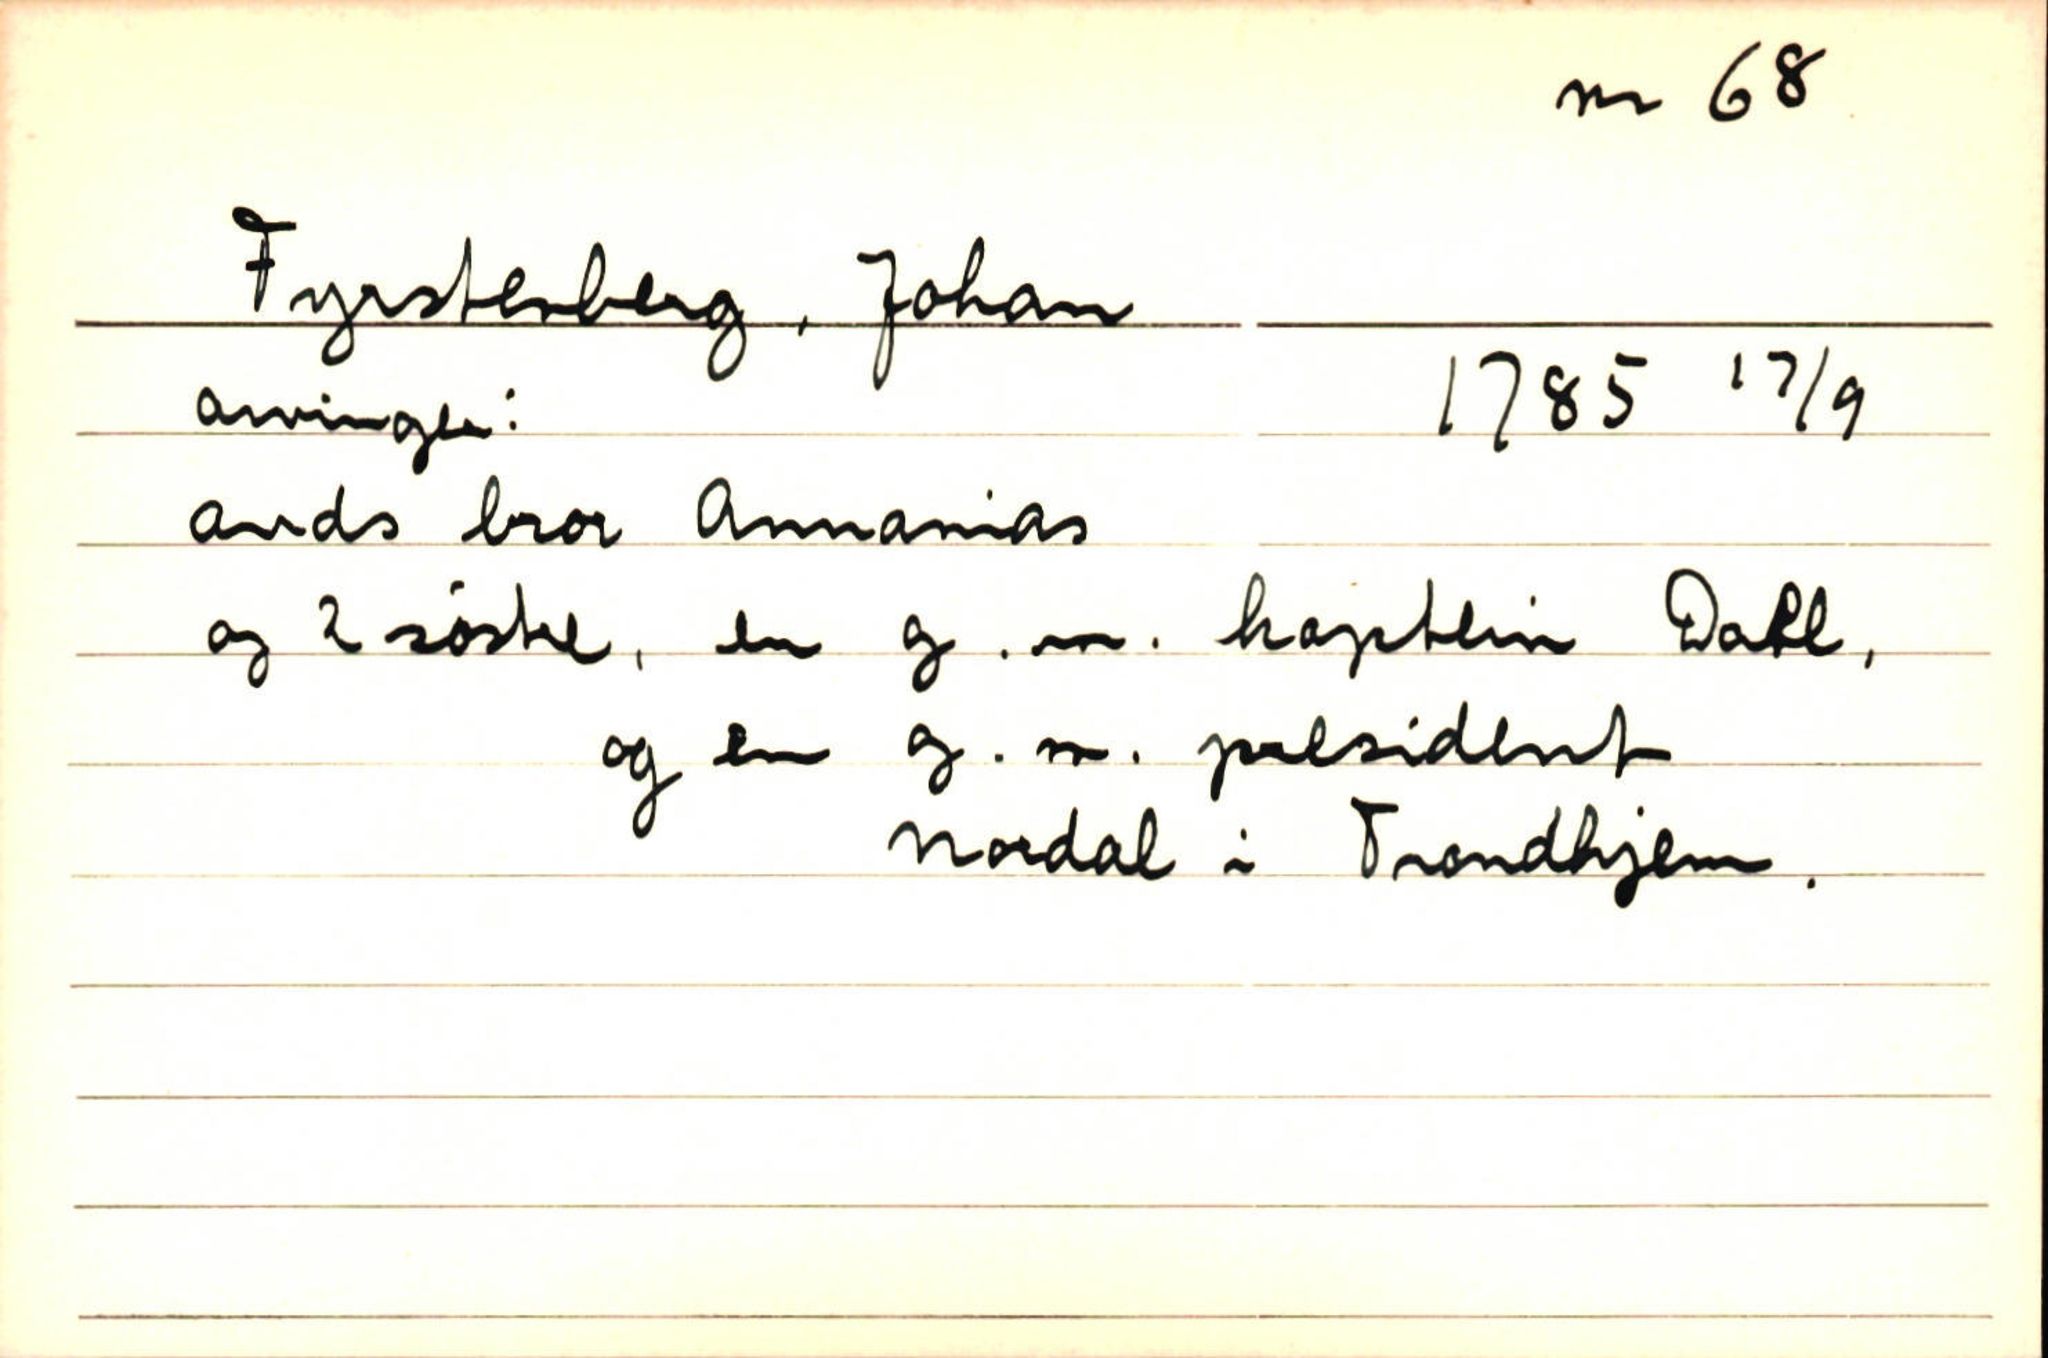 nr 68
Fyrstenberg, Johan
arvinger: 1785 17/9
avds bror Annanias
og 2 søstre, en g. m. kaptein Dahl,
og en g. m. president
Nordal i Trondhjem.